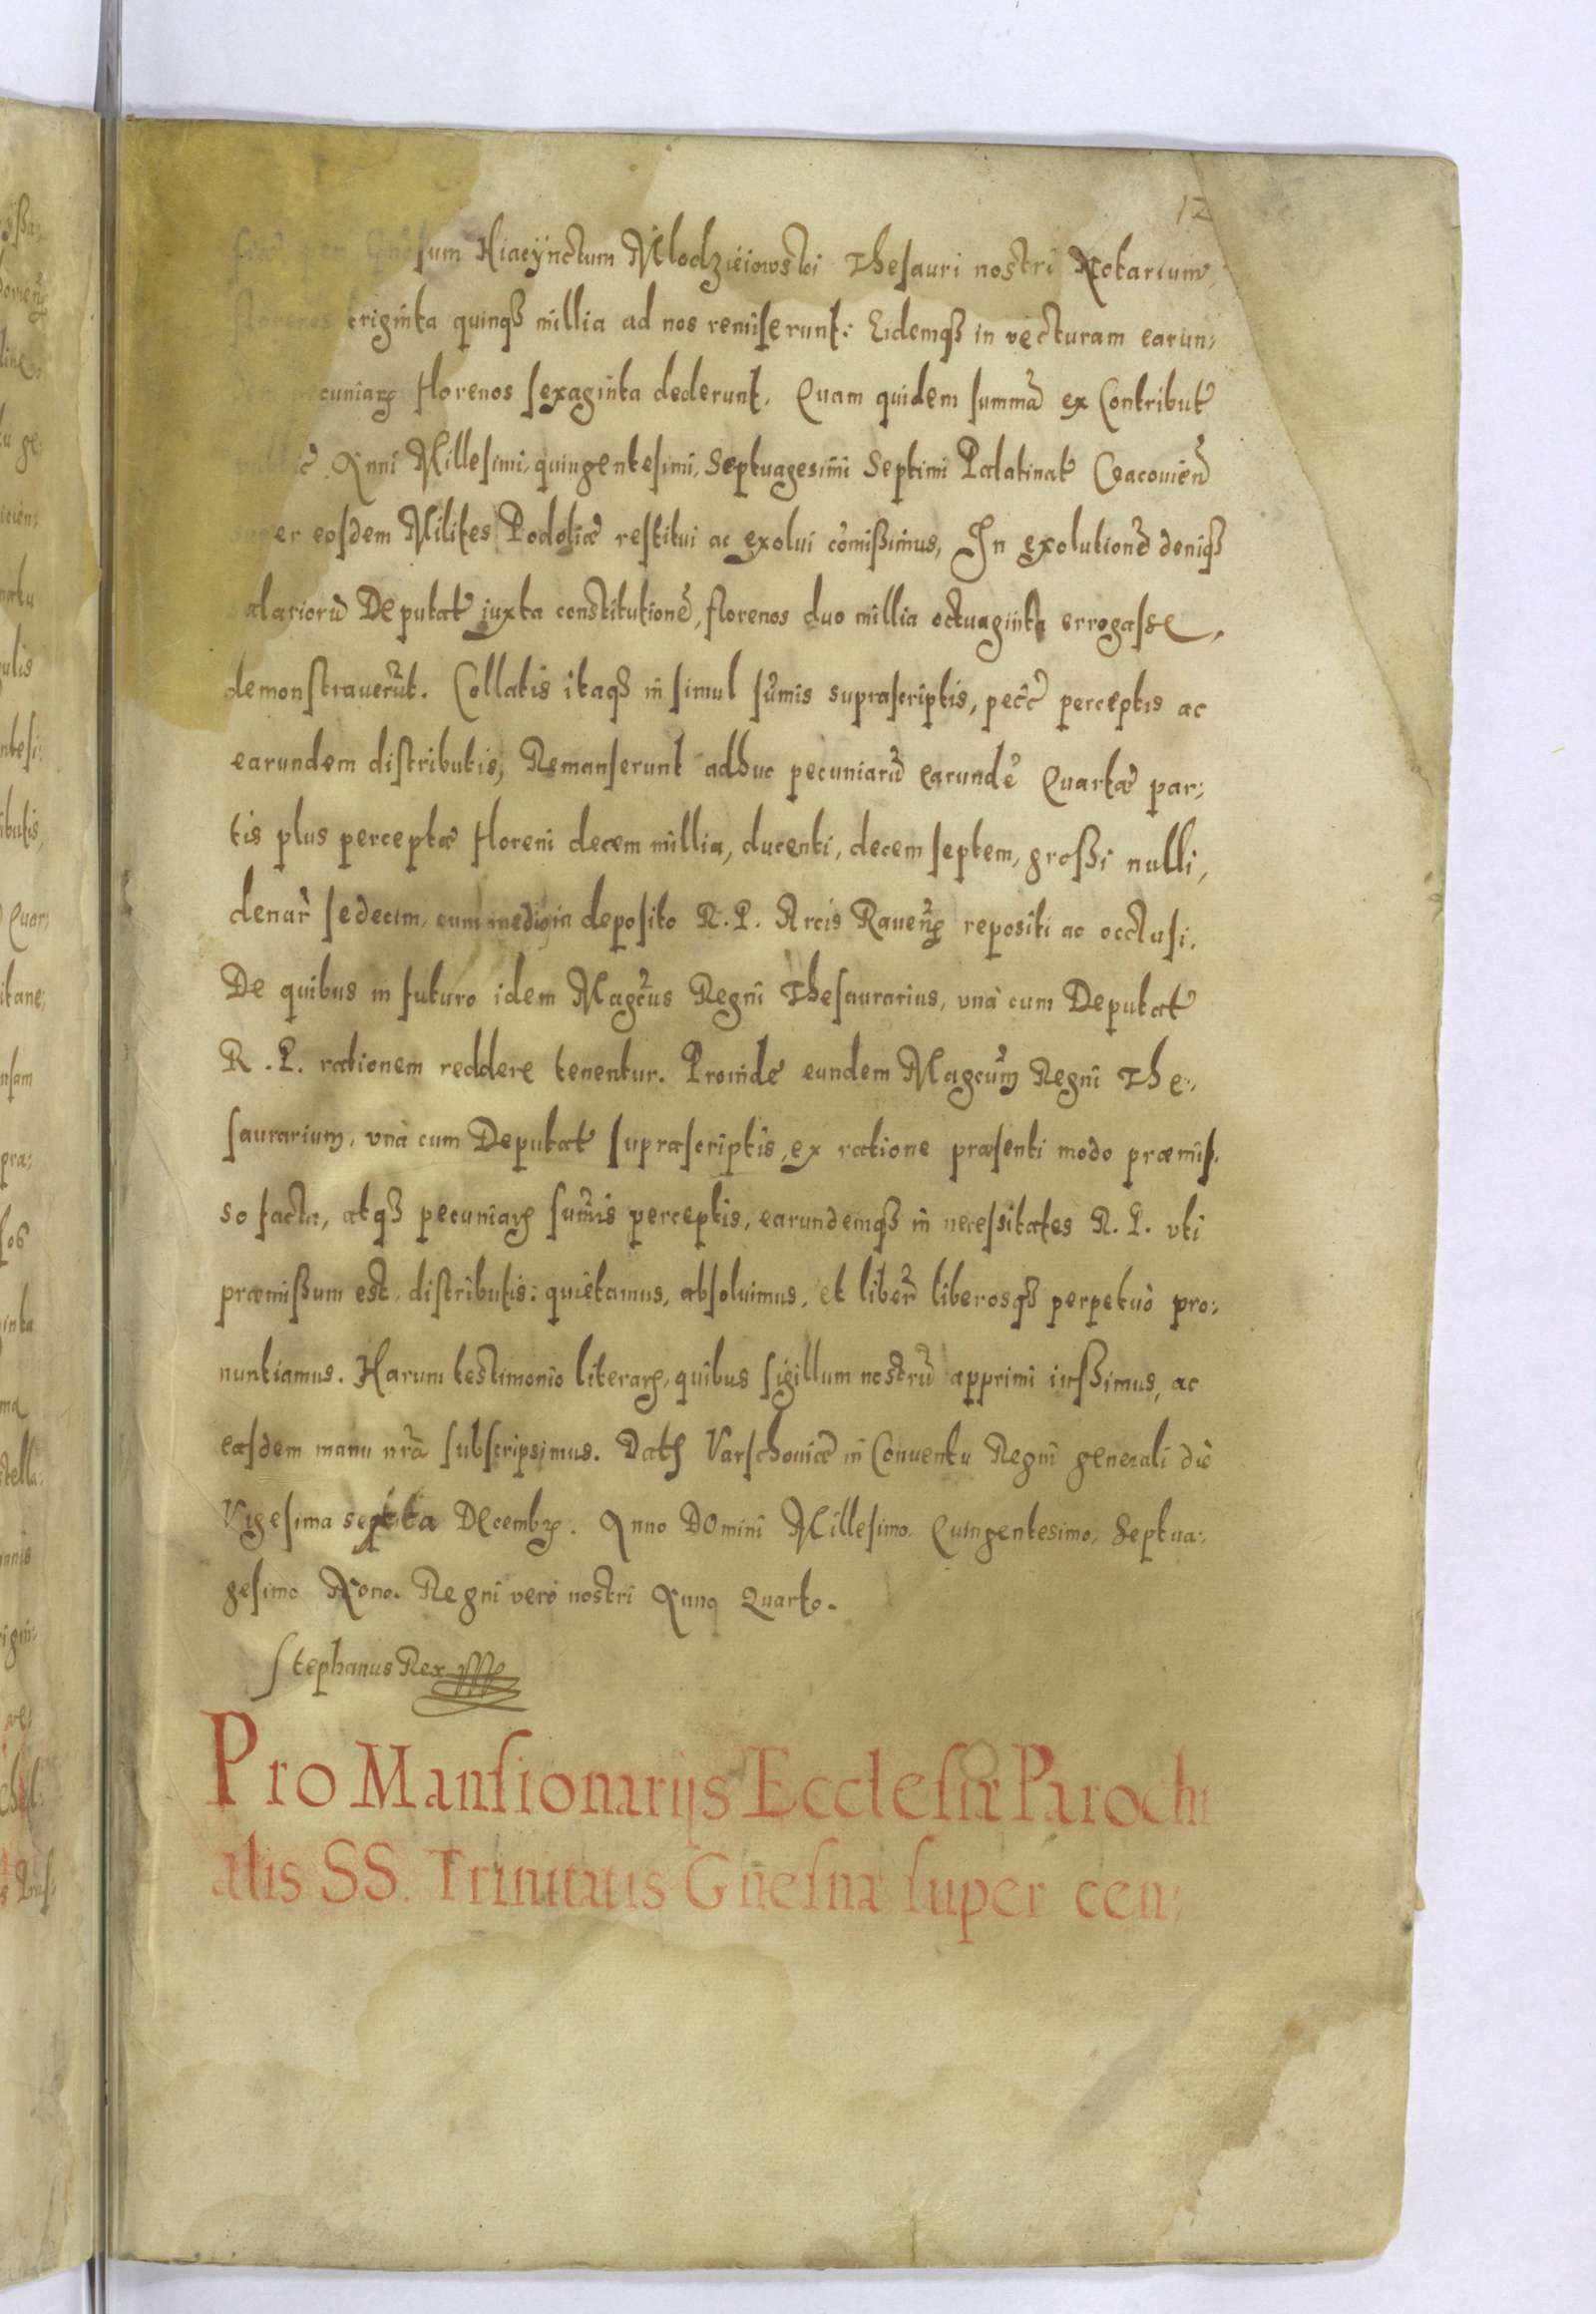 12
per Gn̄osum Hiacÿnctum Mlodzieiowski Thesauri nostri Notarium,
florenos triginta quinq3 millia ad nos remiserunt: Eidemq3 in vecturam earun:
dem pecuniarꝝ florenos sexaginta dederunt. Quam quidem summã ex Contribut
public Anni Millesimi, quingentesimi, Septuagesimi Septimi Palatinat Cracouień
super eosdem Milites Podoliæ restitui ac exolui cõmißimus, In exolutionẽ deniq3
salariorũ Deputat iuxta constitutionẽ, florenos duo millia octuaginta errogasse,
demonstrauerũt. Collatis itaq3 in simul sũmis suprascriptis, pecc̃ perceptis ac
earundem distributis, Remanserunt adhuc pecuniarũ earundẽ Quartæ par:
tis plus perceptæ floreni decem millia, ducenti, decem septem, großi nulli,
denar̃ sedecim, cum medio in deposito R. P. Arcis Raueñ repositi ac occlusi.
De quibus in futuro idem Magc̃us Regni Thesaurarius, vnà cum Deputat
R. P. rationem reddere tenentur. Proinde eundem Magcũm Regni The:
saurarium, vnà cum Deputat suprascriptis, ex ratione præsenti modo præmis:
so facta, atq3 pecuniarꝝ sum̃is perceptis, earundemq3 in necessitates R. P. vti
præmißum est, distributis: quietamus, absoluimus, et liber̃ liberosq3 perpetuò pro:
nuntiamus. Harum testimonio literarꝝ, quibus sigillum nostrũ apprimi iußimus, ac
easdem manu nr̃a subscripsimus. Datꝝ Varschouiæ in Conuentu Regni generali die
Vigesima Decembrꝝ. Anno Domini Millesimo, Quingentesimo, Septua:
gesimo Nono. Regni verò nostri Anno Quarto.
Stephanus Rex
Pro Mansionarijs Ecclesiæ Parochi
alis SS. Trinitatis Gnesnæ super cen: